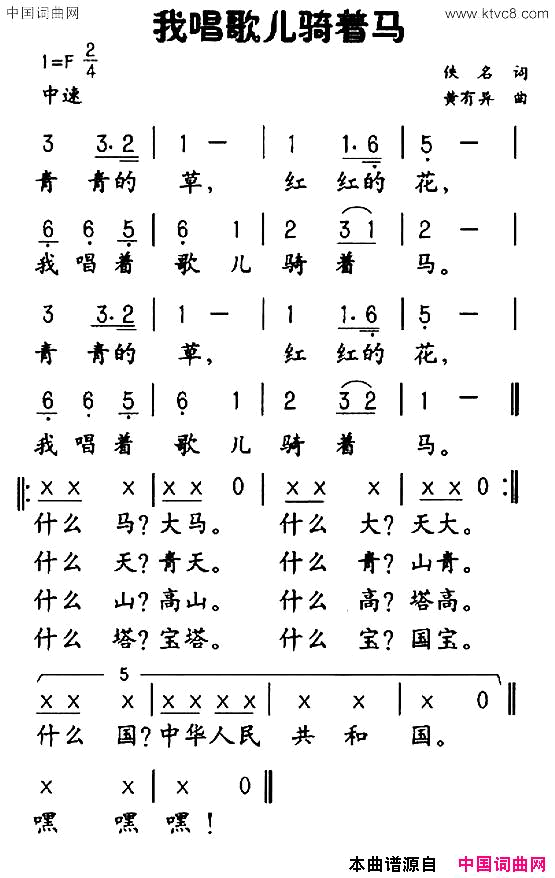 中国词曲网
www.ktvc8.com
我唱歌儿骑着马
1=F 2/4
佚名 词
中速
黄有异 曲
3 3.2 | 1 — | 1 1.6 | 5 — |
青 青的 草, 红 红的 花,
6 6 5 | 6 1 | 2 3 1 | 2 — |
我 唱 着 歌 儿 骑 着 马。
3 3.2 | 1 — | 1 1.6 | 5 — |
青 青的 草, 红 红的 花,
6 6 5 | 6 1 | 2 3 2 | 1 — ‖
我 唱 着 歌 儿 骑 着 马。
‖: X X X | X X 0 | X X X | X X 0 :‖
什么 马?大马。 什么 大?天大。
什么 天?青天。 什么 青?山青。
什么 山?高山。 什么 高?塔高。
什么 塔?宝塔。 什么 宝?国宝。
5
X X X | X X X X | X X | X 0 ‖
什么 国?中华人民 共 和 国。
X X | X 0 ‖
嘿 嘿 嘿!
本曲谱源自 中国词曲网